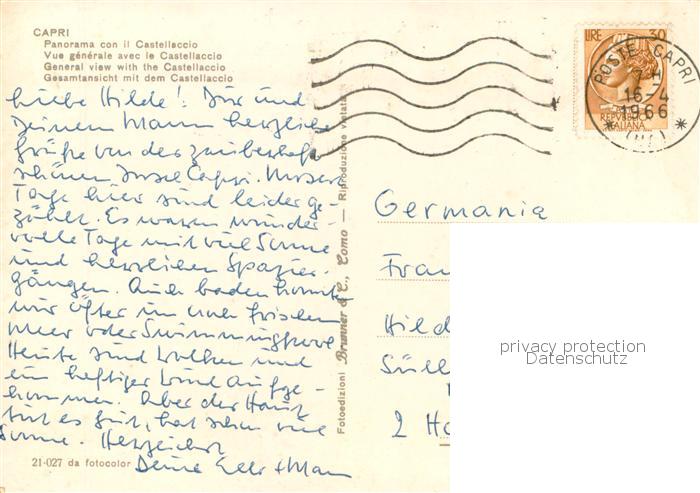 CAPRI
Panorama con il Castellaccio
Vue générale avec le Castellaccio
General view with the Castellaccio
Gesamtansicht mit dem Castellaccio
Liebe Hilde! Dir und
Deinem Mann herzliche
Grüße von der zauberhaft
schönen Insel Capri. Unsere
Tage hier sind leider ge-
zählt. Es waren wunder-
volle Tage mit viel Sonne
und herrlichen Spazier-
gängen. Auch baden konnten
wir öfter im noch frischen
Meer oder Swimmingpool
Heute sind Wolken und
ein heftiger Wind aufge-
kommen. Aber der Haut
tut es gut, hat schon viel
Sonne. Herzlichst
Deine
21-027 da fotocolor
Fotoedizioni Brunner & C., Como — Riproduzione vietata
LIRE 30
POSTE CAPRI
16-4
1966
REPVBBLICA
ITALIANA
Germania
Frau
Hild
Süll
2 Ha
privacy protection
Datenschutz